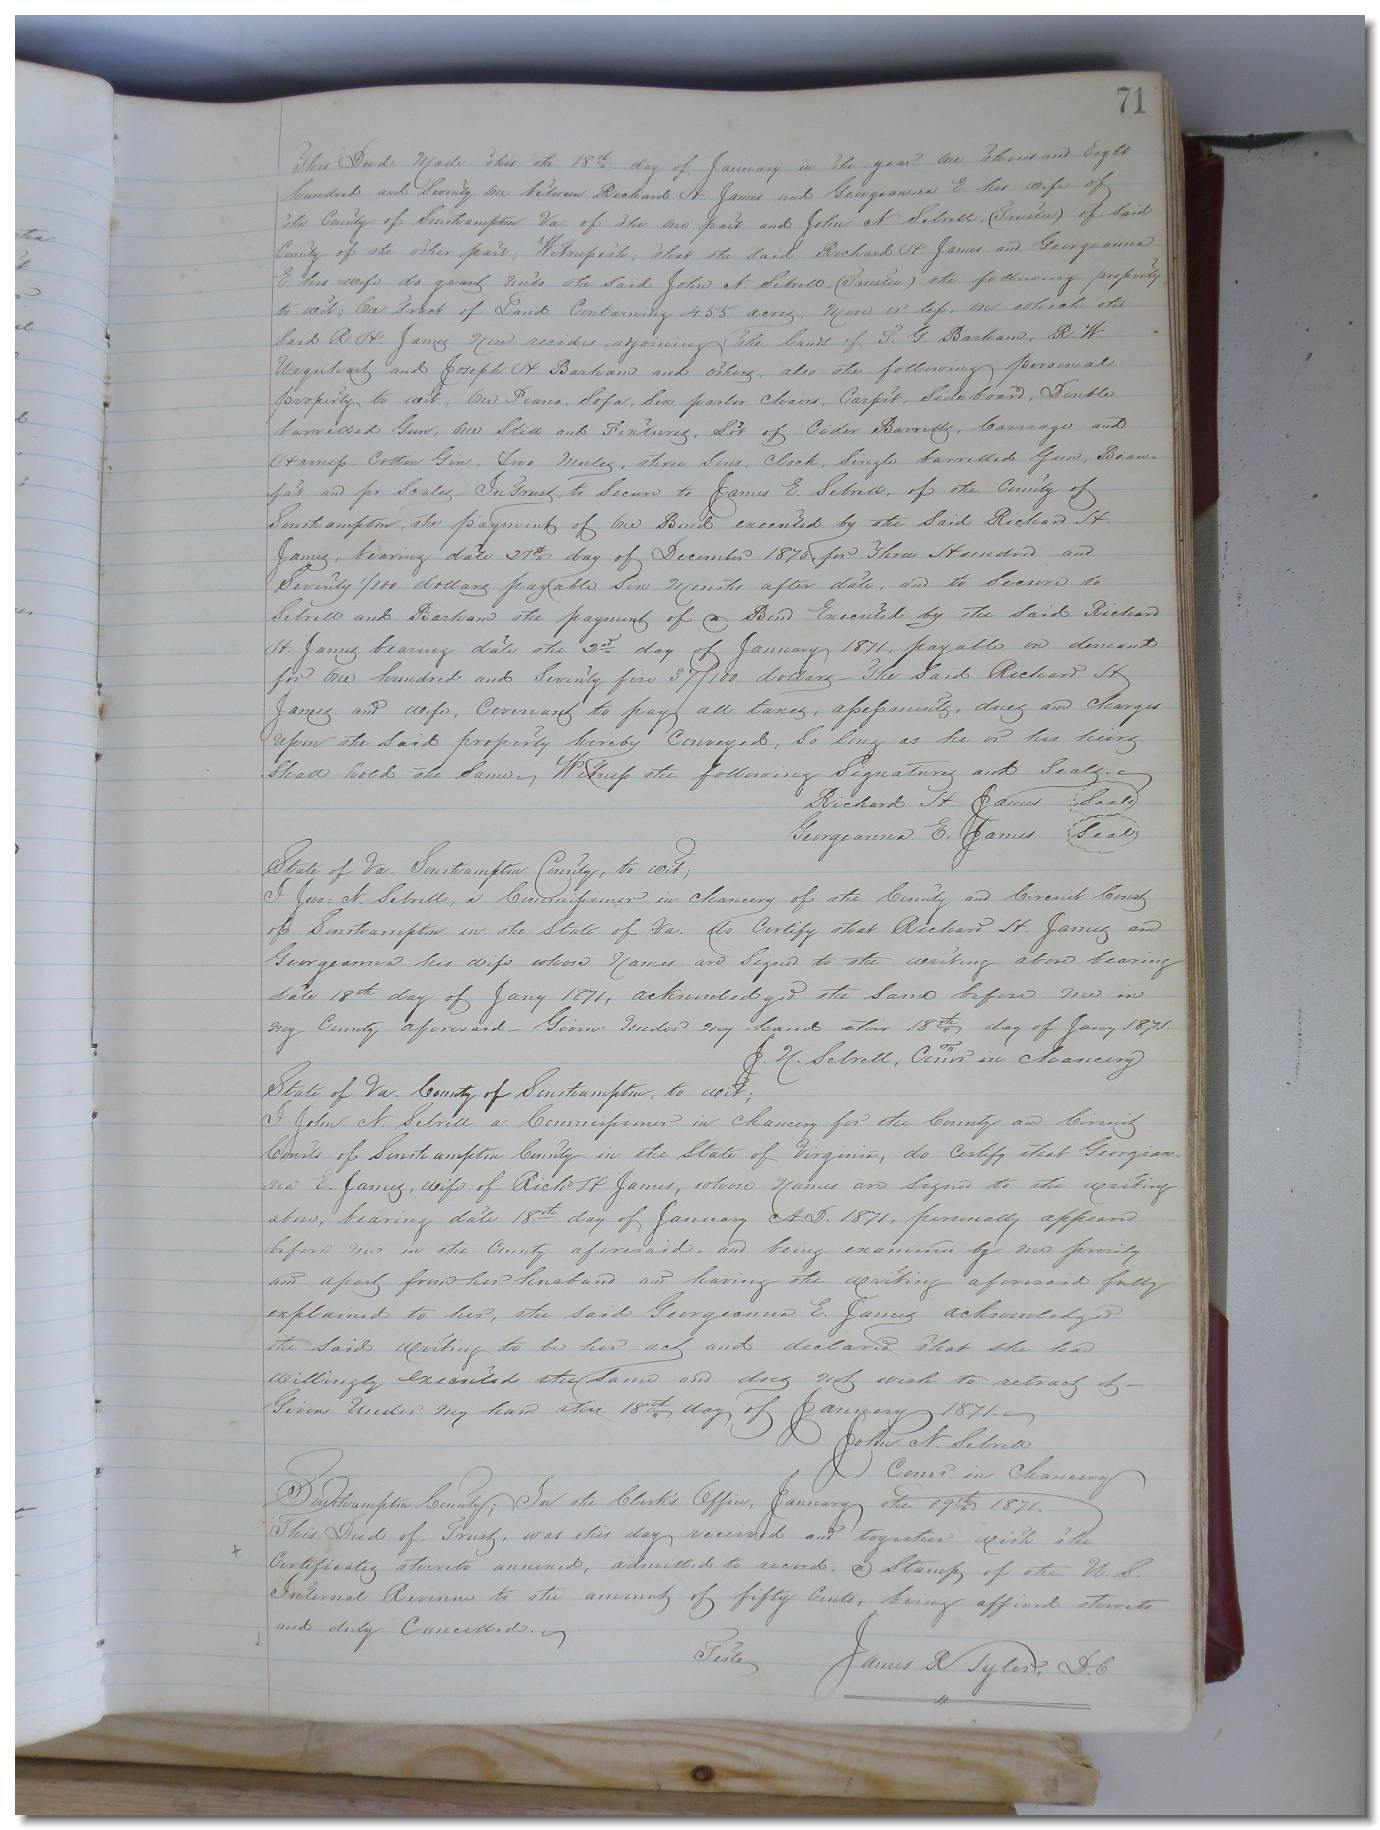 71
This Deed Made this the 18th day of January in the year One thousand Eight
hundred and Seventy One between Richard H. James and Georgeanna E his wife of
the County of Southampton Va. of the one part and John N. Sebrell, (Trustee) of Said
County of the other part, Witnesseth; that the said Richard H. James and Georgeanna
E. his wife do grant unto the said John N. Sebrell, (Trustee) the following property
to wit; One Tract of Land Containing 455 acres, More or less, on which the
Said R. H. James Now resides, adjoining the lands of T. G. Barham, R. W.
Urquhart and Joseph H Barham and others, also the following personal
property to wit, One Piano, Sofa, Six parlor Chairs, Carpet, Side board, Double
barrelled Gun, One Still and Fixtures, Lot of Cider Barrells, Carriage and
Harness, Cotton Gin, Two Mules, three Sows, Clock, Single barrelled Gun, Beau-
fat and pr Scales, In Trust, to Secure to James E. Sebrell, of the County of
Southampton, the payment of One Bond executed by the Said Richard H.
James, bearing date 27th day of December 1870, for Three Hundred and
Seventy /100 dollars payable Six Months after date, and to Secure to
Sebrell and Barham the payment of a Bond Executed by the Said Richard
H. James bearing date the 2nd day of January 1871, payable on demand
for One hundred and Seventy five 37/100 dollars – The Said Richard H
James and wife, Covenant to pay all taxes, assessments, dues and Charges
upon the Said property hereby Conveyed, So long as he or his heirs
Shall hold the Same, Witness the following Signatures and Seals.
Richard H. James (Seal)
Georgeanna E. James (Seal)
State of Va. Southampton County, to wit;
I Jno: N. Sebrell, a Commissioner in Chancery of the County and Circuit Court
of Southampton in the State of Va. do Certify that Richard H. James and
Georgeanna his wife whose Names are Signed to the writing above bearing
date 18th day of Jany 1871, acknowledged the Same before me in
my County aforesaid – Given Under my hand this 18th day of Jany 1871.
J. N. Sebrell, Comr in Chancery
State of Va. County of Southampton, to wit;
I John N. Sebrell a Commissioner in Chancery for the County and Circuit
Courts of Southampton County in the State of Virginia, do Certify that Georgian-
na E. James, wife of Richd H James, whose Names are Signed to the writing
above, bearing date 18th day of January A.D. 1871, personally appeared
before me in the County aforesaid, and being examined by me privily
and apart from her husband and having the writing aforesaid fully
explained to her, the said Georgeanna E. James acknowledged
the said writing to be her act and declared that she had
willingly executed the Same and does not wish to retract it –
Given Under my hand this 18th day of January 1871.
John N. Sebrell
Comr in Chancery
Southampton County; In the Clerk's Office, January the 19th 1871.
This Deed of Trust, was this day received and together with the
Certificates thereto annexed, admitted to record, a Stamp of the U. S.
Internal Revenue to the amount of fifty Cents, being affixed thereto
and duly Cancelled.
Teste
James R Tyler, D.C